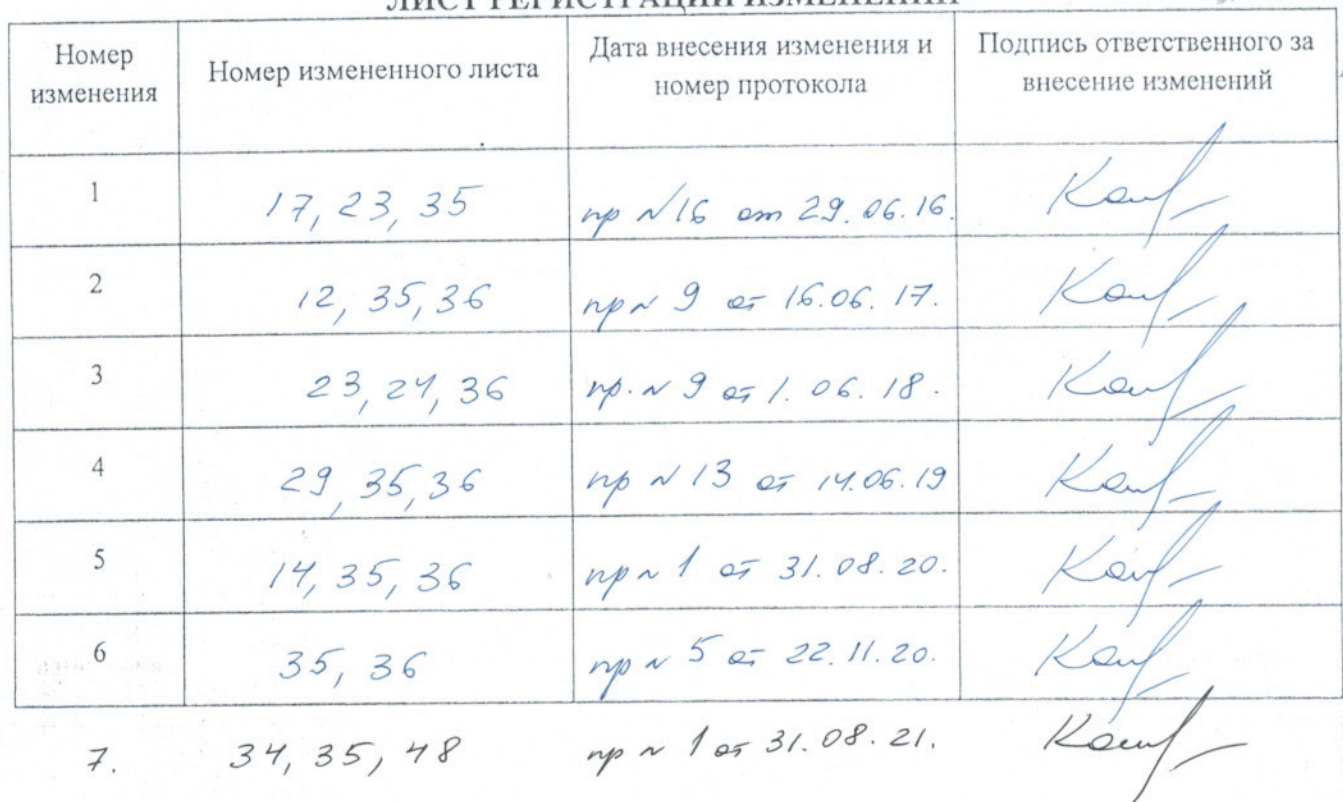 ЛИСТ РЕГИСТРАЦИИ ИЗМЕНЕНИЙ
Номер изменения | Номер измененного листа | Дата внесения изменения и номер протокола | Подпись ответственного за внесение изменений
1 | 17, 23, 35 | пр №16 от 29.06.16.
2 | 12, 35, 36 | пр № 9 от 16.06.17.
3 | 23, 24, 36 | пр. № 9 от 1.06.18.
4 | 29, 35, 36 | пр № 13 от 14.06.19
5 | 14, 35, 36 | пр № 1 от 31.08.20.
6 | 35, 36 | пр № 5 от 22.11.20.
7. 34, 35, 48 пр № 1 от 31.08.21.